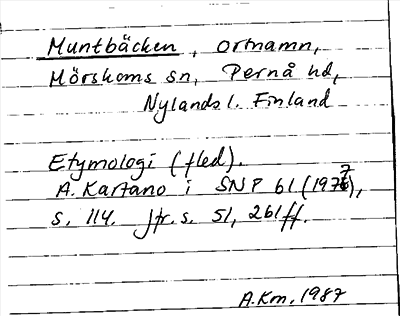 Muntbäcken, ortnamn,
Mörskoms sn, Pernå hd,
Nylands l. Finland
Etymologi (fled).
A. Kartano i SNP 61 (1977),
s. 114. Jfr. s. 51, 261ff.
A.Km. 1987